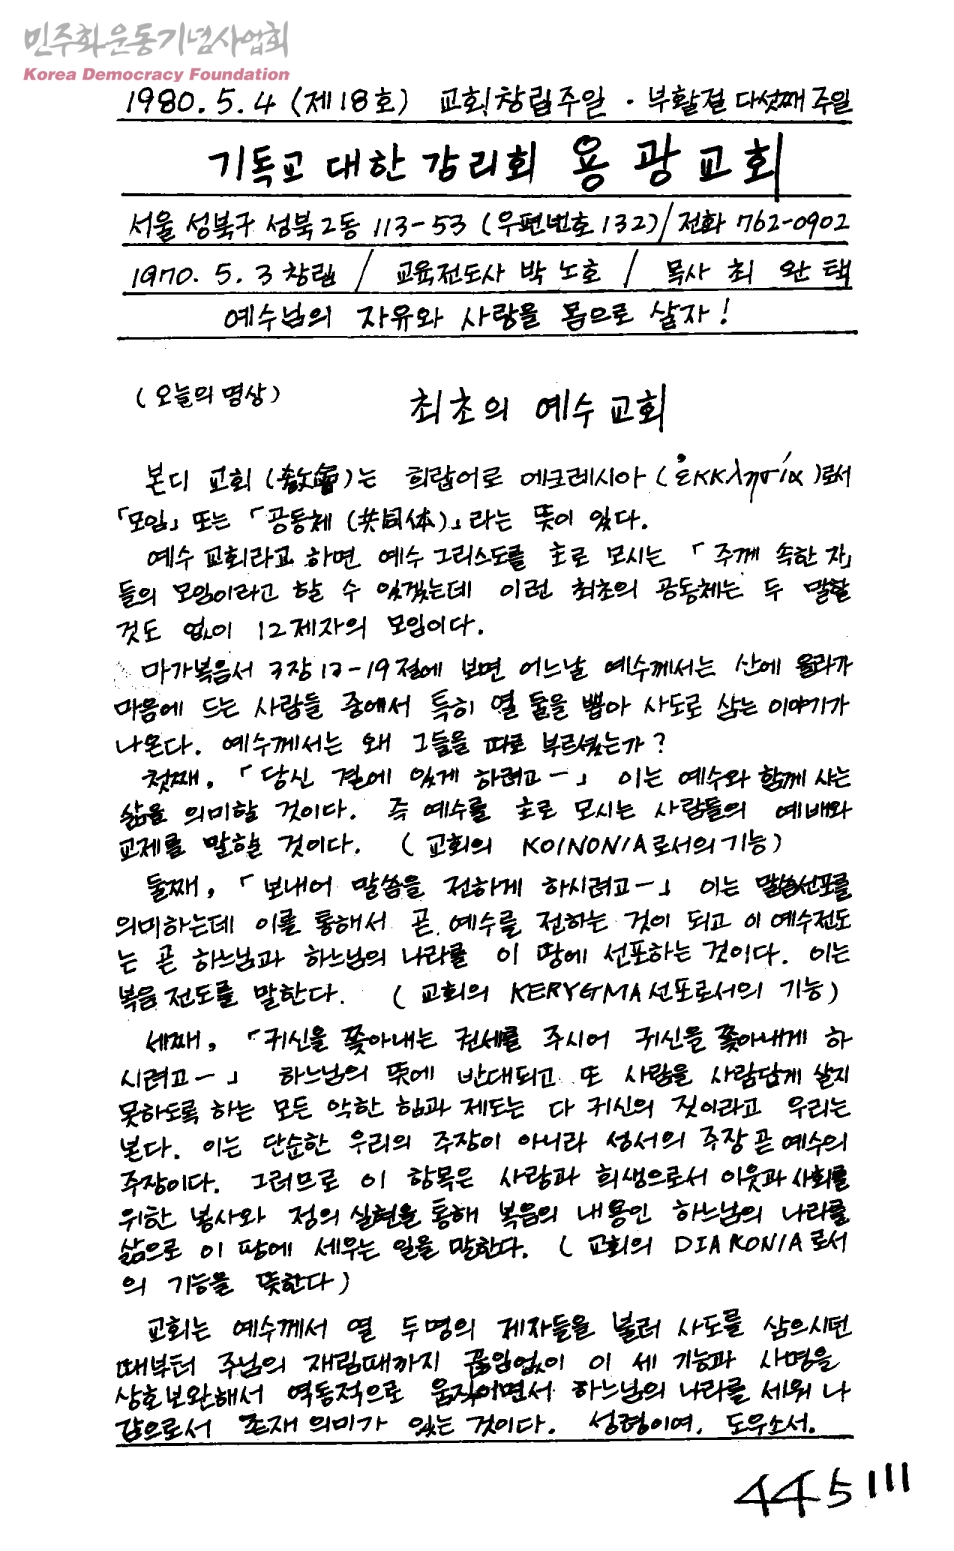 민주화운동기념사업회
Korea Democracy Foundation
1980. 5. 4 (제18호) 교회창립주일 · 부활절 다섯째 주일
기독교 대한 감리회 용광교회
서울 성북구 성북2동 113-53 (우편번호 132) / 전화 762-0902
1970. 5. 3 창립 / 교육전도사 박 노호 / 목사 최 완 택
예수님의 자유와 사랑을 몸으로 살자!
(오늘의 명상) 최초의 예수 교회
본디 교회 (敎會)는 희랍어로 에크레시아 (ἐκκλησία)로서
「모임」 또는 「공동체 (共同体)」라는 뜻이 있다.
예수 교회라고 하면 예수 그리스도를 主로 모시는 「주께 속한 자」
들의 모임이라고 할 수 있겠는데 이런 최초의 공동체는 두 말할
것도 없이 12제자의 모임이다.
마가복음서 3장 13-19절에 보면 어느날 예수께서는 산에 올라가
마음에 드는 사람들 중에서 특히 열 둘을 뽑아 사도로 삼는 이야기가
나온다. 예수께서는 왜 그들을 따로 부르셨는가?
첫째, 「당신 곁에 있게 하려고-」 이는 예수와 함께 사는
삶을 의미할 것이다. 즉 예수를 主로 모시는 사람들의 예배와
교제를 말할 것이다. (교회의 KOINONIA로서의 기능)
둘째, 「보내어 말씀을 전하게 하시려고-」 이는 말씀선포를
의미하는데 이를 통해서 곧 예수를 전하는 것이 되고 이 예수전도
는 곧 하느님과 하느님의 나라를 이 땅에 선포하는 것이다. 이는
복음 전도를 말한다. (교회의 KERYGMA 선포로서의 기능)
세째, 「귀신을 쫓아내는 권세를 주시어 귀신을 쫓아내게 하
시려고-」 하느님의 뜻에 반대되고 또 사람을 사람답게 살지
못하도록 하는 모든 악한 힘과 제도는 다 귀신의 짓이라고 우리는
본다. 이는 단순한 우리의 주장이 아니라 성서의 주장 곧 예수의
주장이다. 그러므로 이 항목은 사랑과 희생으로서 이웃과 사회를
위한 봉사와 정의 실현을 통해 복음의 내용인 하느님의 나라를
삶으로 이 땅에 세우는 일을 말한다. (교회의 DIAKONIA로서
의 기능을 뜻한다)
교회는 예수께서 열 두명의 제자들을 불러 사도를 삼으시던
때부터 주님의 재림때까지 끊임없이 이 세 기능과 사명을
상호보완해서 역동적으로 움직이면서 하느님의 나라를 세워 나
감으로서 존재 의미가 있는 것이다. 성령이여, 도우소서.
445111